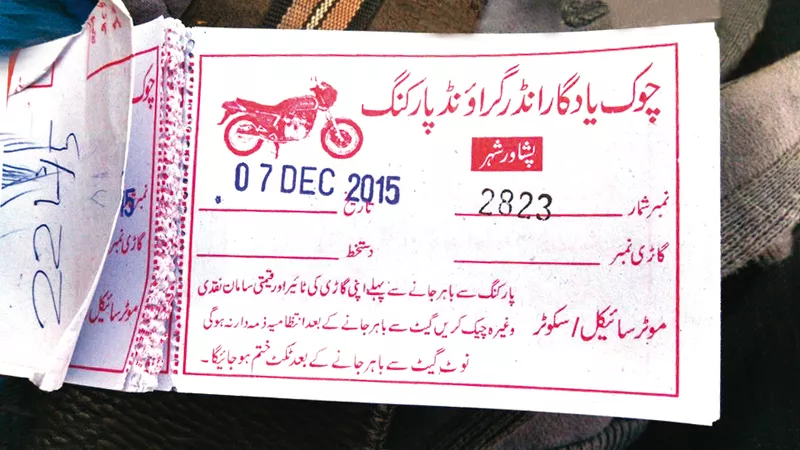 چوک یادگار انڈر گراؤنڈ پارکنگ
پشاور شہر
نمبر شمار 2823 تاریخ 07 DEC 2015
گاڑی نمبر دستخط
پارکنگ سے باہر جانے سے پہلے اپنی گاڑی کی ٹائیر اور قیمتی سامان نقدی
موٹر سائیکل / سکوٹر وغیرہ چیک کریں گیٹ سے باہر جانے کے بعد انتظامیہ ذمہ دار نہ ہوگی
نوٹ گیٹ سے باہر جانے کے بعد ٹکٹ ختم ہو جائیگا۔
چوک
نمبر
گاڑی نمبر
موٹر سائیکل
2245